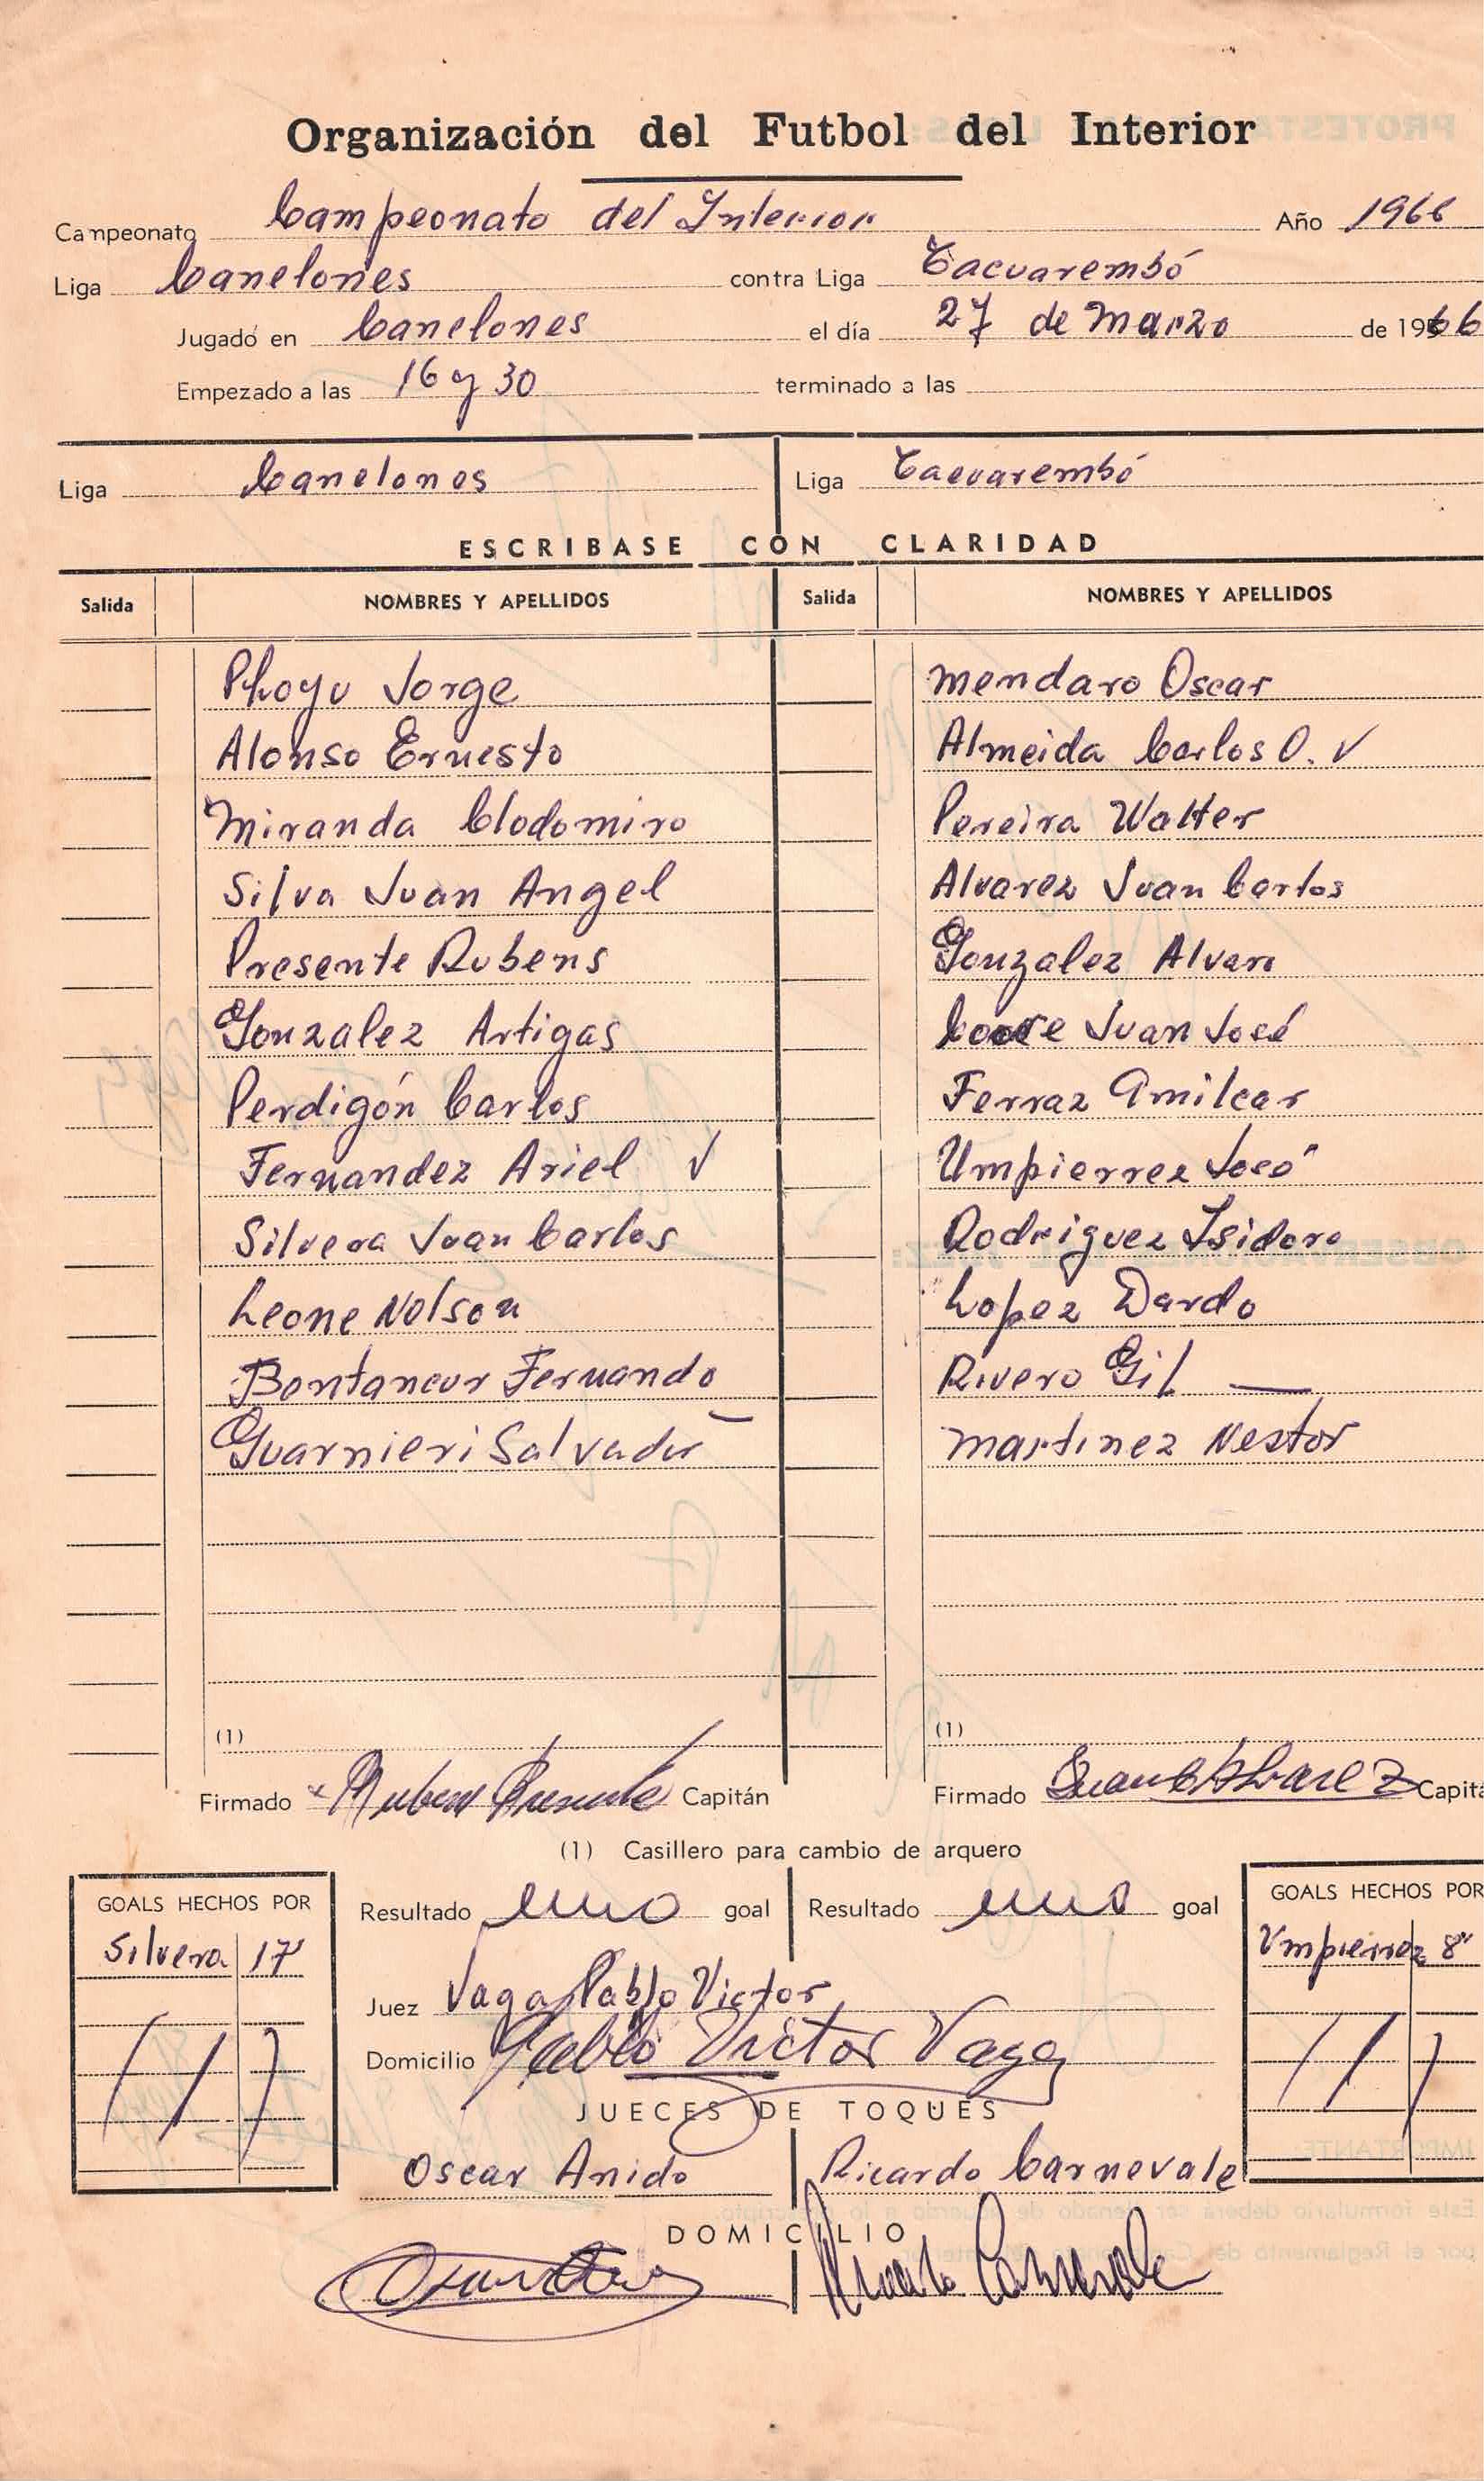 Organización del Futbol del Interior
Campeonato Campeonato del Interior Año 1966
Liga Canelones contra Liga Tacuarembó
Jugado en Canelones el día 27 de Marzo de 1966
Empezado a las 16 y 30 terminado a las
Liga Canelones Liga Tacuarembó
ESCRIBASE CON CLARIDAD
Salida NOMBRES Y APELLIDOS Salida NOMBRES Y APELLIDOS
Phoyu Jorge Mendaro Oscar
Alonso Ernesto Almeida Carlos O. ✓
Miranda Clodomiro Pereira Walter
Silva Juan Angel Alvarez Juan Carlos
Presente Rubens Gonzalez Alvaro
Gonzalez Artigas Juan José
Perdigón Carlos Ferraz Amilcar
Fernandez Ariel ✓ Umpierrez José
Silvera Juan Carlos Rodriguez Isidoro
Leone Nelson Lopez Dardo
Bentancur Fernando Rivero Gil —
Guarnieri Salvador Martinez Nestor
(1) (1)
Firmado Ruben Presente Capitán Firmado Juan C Alvarez Capitá
(1) Casillero para cambio de arquero
GOALS HECHOS POR Resultado uno goal Resultado uno goal GOALS HECHOS POR
Silvera 17' Umpierrez 8'
Juez Vaga Pablo Victor
Domicilio Pablo Victor Vaga
JUECES DE TOQUES
Oscar Anido Ricardo Carnevale
DOMICILIO
Ricardo Carnevale